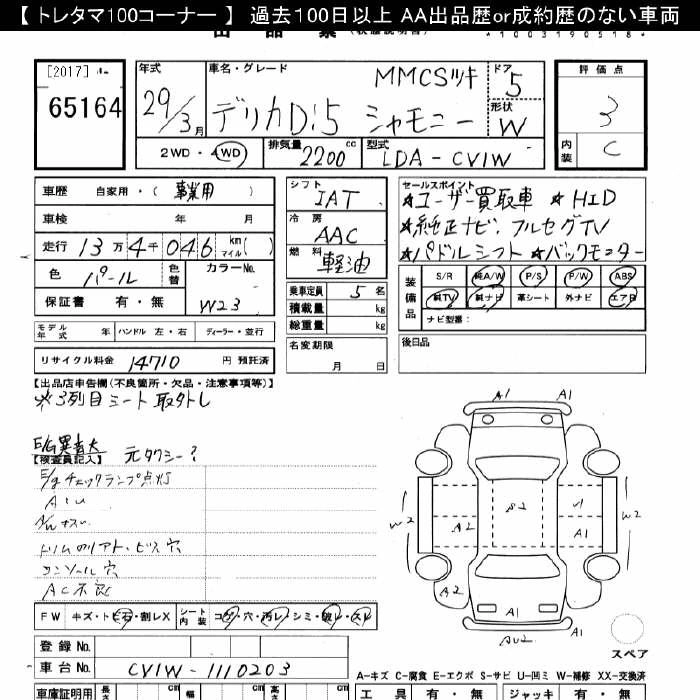 【 トレタマ100コーナー 】 過去100日以上 AA出品歴or成約歴のない車両
[2017]
65164
年式
29/3月
車名・グレード
MMCSツキ
デリカD:5 シャモニー
ドア
5
形状
W
2WD・4WD
排気量
2200cc
型式
LDA-CV1W
評価点
3
内装
C
車歴 自家用・(事業用)
車検 年 月
走行 13万4千046 km マイル( )
色 パール 色替 カラーNo.
W23
保証書 有・無
モデル年式 年 ハンドル 左・右 ディーラー・並行
リサイクル料金 14710 円 預託済
シフト
IAT
冷房
AAC
燃料
軽油
乗車定員 5 名
積載量 kg
総重量 kg
名変期限
月 日
セールスポイント
★ユーザー買取車 ★HID
★純正ナビ、フルセグTV
★パドルシフト ★バックモニター
装備品
S/R 純A/W P/S P/W ABS
純TV 純ナビ 革シート 外ナビ エアB
ナビ型番:
後日品
【出品店申告欄(不良箇所・欠品・注意事項等)】
※3列目シート取外し
E/G異音大
元タクシー?
【検査員記入】
E/gチェックランプ点灯
A/Wキズ
コンソール穴
AC不良
FW キズ・トビ石・割レX シート内装 コゲ・穴・汚レ・シミ・破レ・スレ
登録No.
車台No. CV1W-1110203
車庫証明用 長さ cm 幅 cm cm
A1 A1
W2 A2 S2 A1 W2
A2 A1 A1
AU2
スペア
A-キズ C-腐食 E-エクボ S-サビ U-凹ミ W-補修 XX-交換済
工具 有・無 ジャッキ 有・無